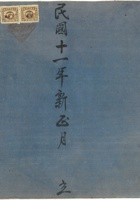 民國十一年新正月
立